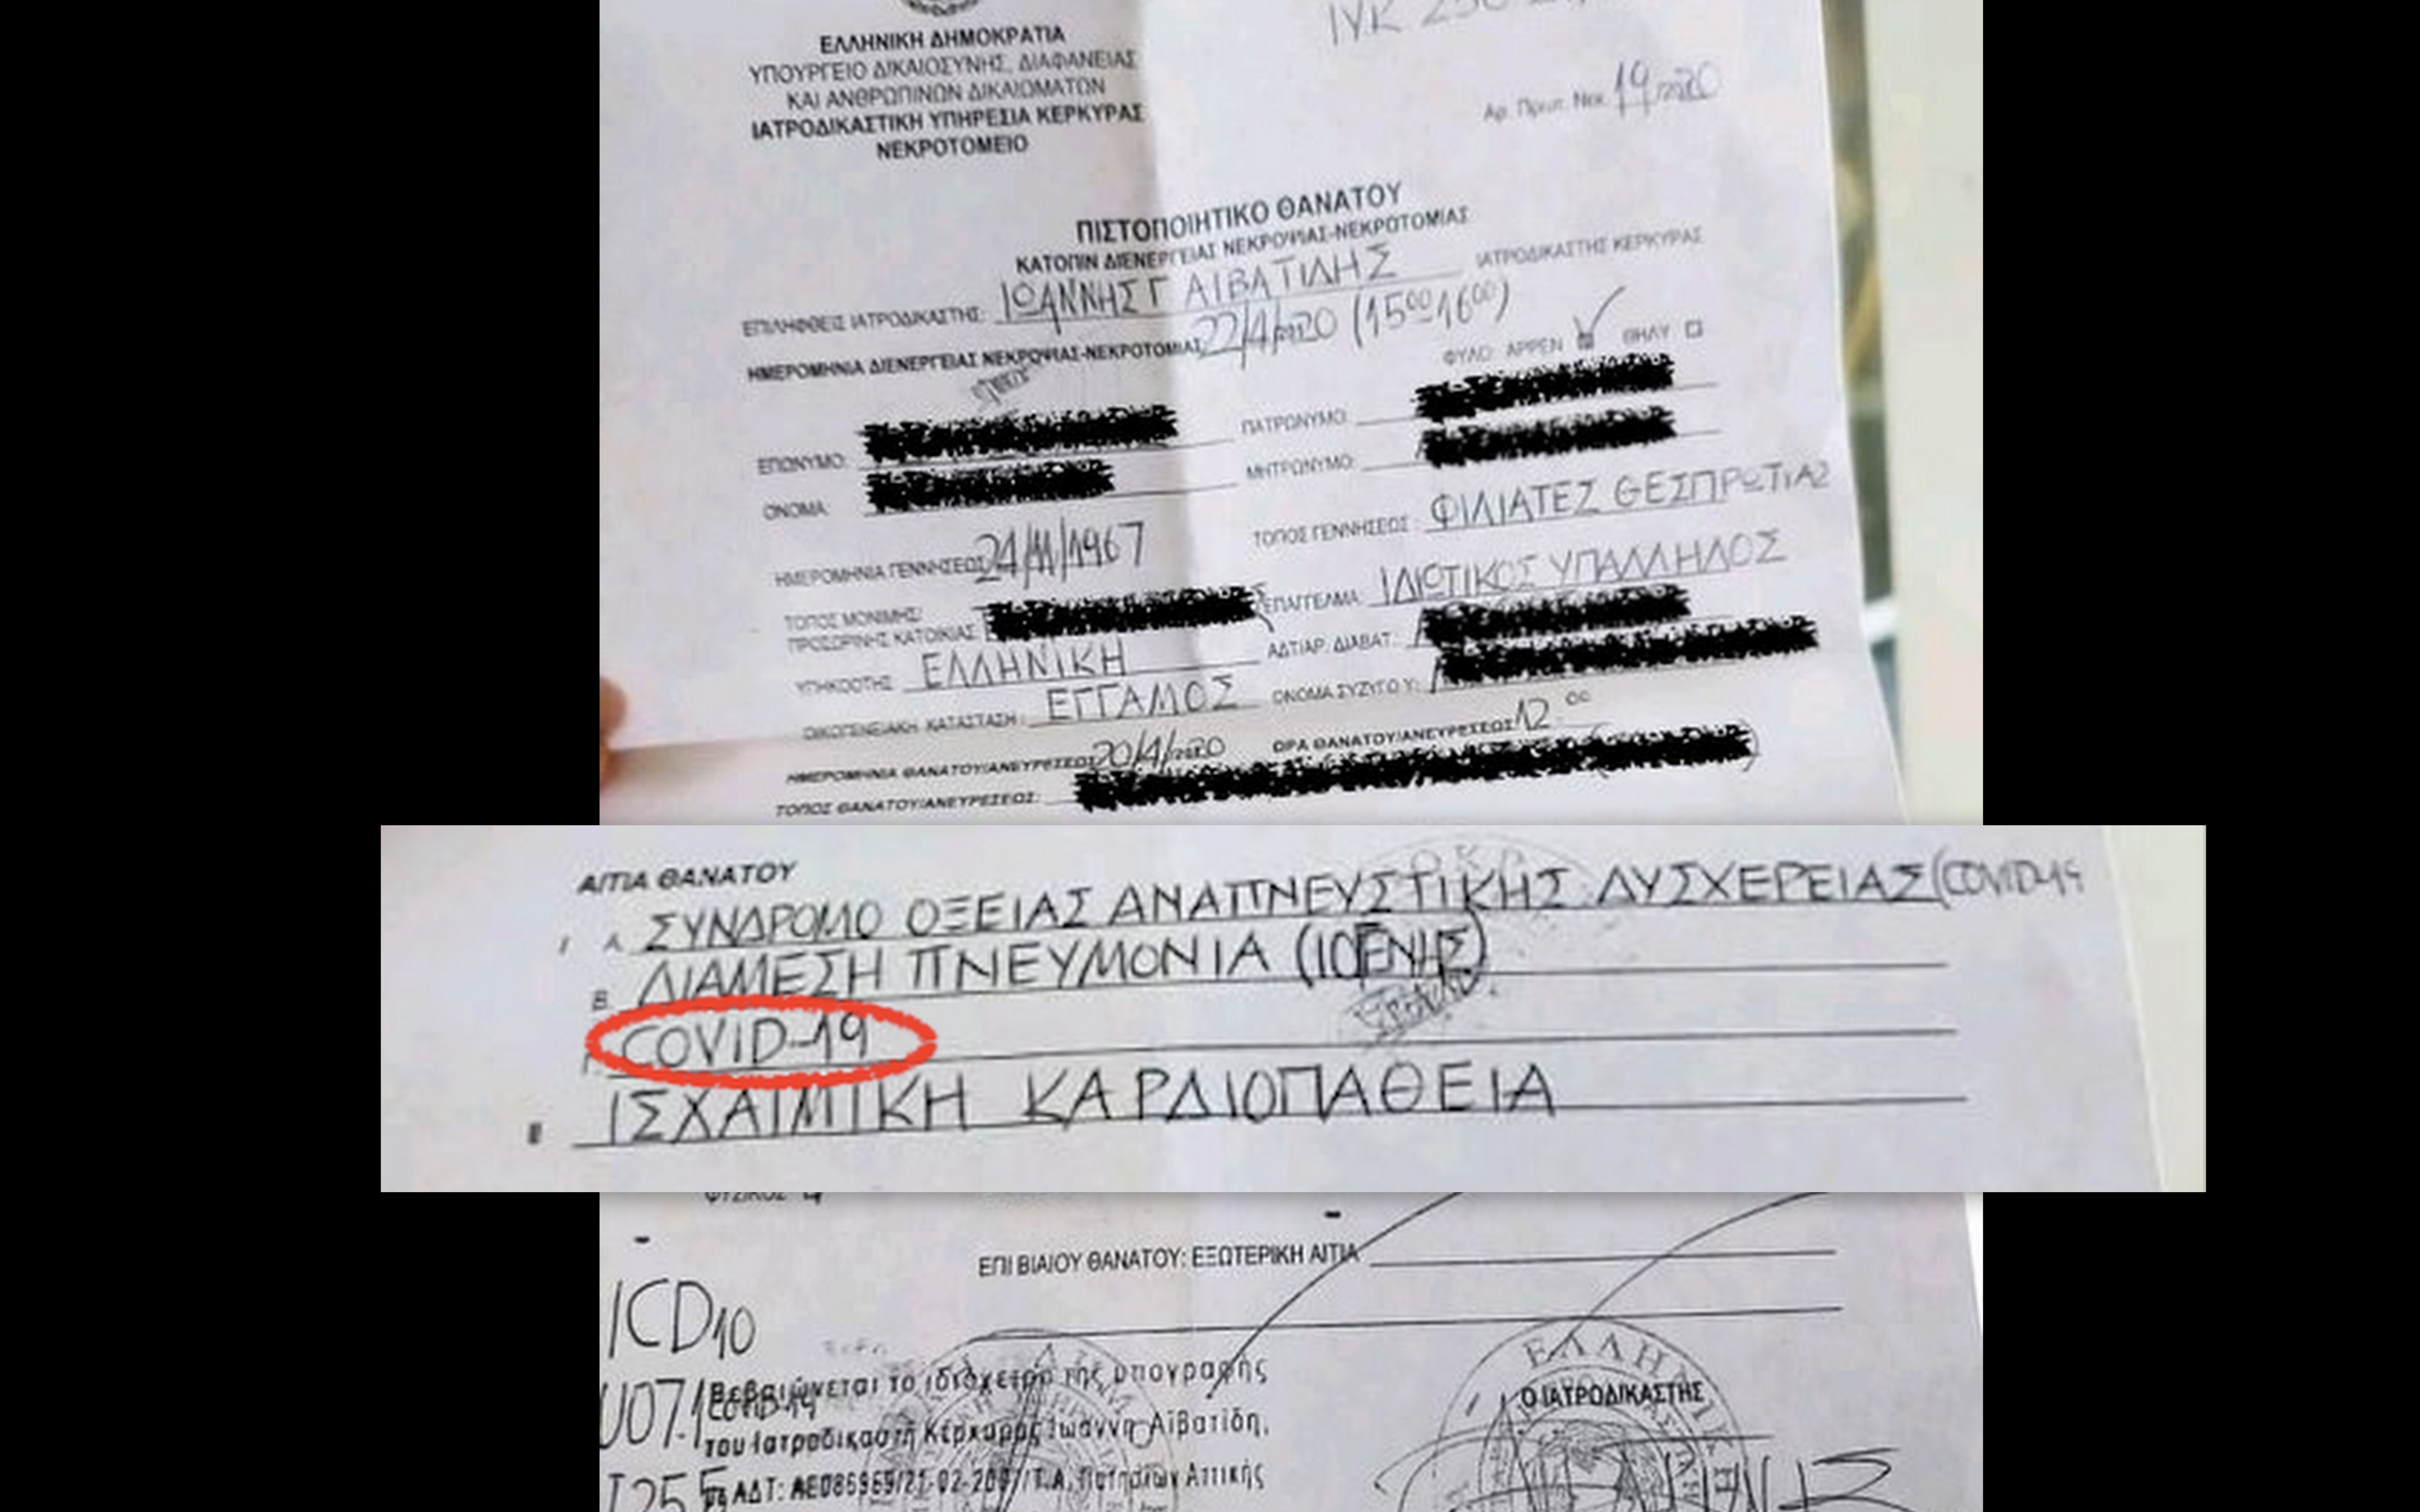 ΙΥΚ
ΕΛΛΗΝΙΚΗ ΔΗΜΟΚΡΑΤΙΑ
ΥΠΟΥΡΓΕΙΟ ΔΙΚΑΙΟΣΥΝΗΣ, ΔΙΑΦΑΝΕΙΑΣ
ΚΑΙ ΑΝΘΡΩΠΙΝΩΝ ΔΙΚΑΙΩΜΑΤΩΝ
ΙΑΤΡΟΔΙΚΑΣΤΙΚΗ ΥΠΗΡΕΣΙΑ ΚΕΡΚΥΡΑΣ
ΝΕΚΡΟΤΟΜΕΙΟ
Αρ. Πρωτ. Νεκ. 19/2020
ΠΙΣΤΟΠΟΙΗΤΙΚΟ ΘΑΝΑΤΟΥ
ΚΑΤΟΠΙΝ ΔΙΕΝΕΡΓΕΙΑΣ ΝΕΚΡΟΨΙΑΣ-ΝΕΚΡΟΤΟΜΙΑΣ
ΕΠΙΛΗΦΘΕΙΣ ΙΑΤΡΟΔΙΚΑΣΤΗΣ: ΙΩΑΝΝΗΣ Γ ΑΙΒΑΤΙΔΗΣ ΙΑΤΡΟΔΙΚΑΣΤΗΣ ΚΕΡΚΥΡΑΣ
ΗΜΕΡΟΜΗΝΙΑ ΔΙΕΝΕΡΓΕΙΑΣ ΝΕΚΡΟΨΙΑΣ-ΝΕΚΡΟΤΟΜΙΑΣ 22/4/2020 (15⁰⁰-16⁰⁰)
ΦΥΛΟ: ΑΡΡΕΝ ΘΗΛΥ
ΕΠΩΝΥΜΟ: ΠΑΤΡΩΝΥΜΟ:
ΟΝΟΜΑ: ΜΗΤΡΩΝΥΜΟ:
ΗΜΕΡΟΜΗΝΙΑ ΓΕΝΝΗΣΕΩΣ 24/11/1967 ΤΟΠΟΣ ΓΕΝΝΗΣΕΩΣ: ΦΙΛΙΑΤΕΣ ΘΕΣΠΡΩΤΙΑΣ
ΤΟΠΟΣ ΜΟΝΙΜΗΣ/
ΠΡΟΣΩΡΙΝΗΣ ΚΑΤΟΙΚΙΑΣ ΕΠΑΓΓΕΛΜΑ: ΙΔΙΩΤΙΚΟΣ ΥΠΑΛΛΗΛΟΣ
ΥΠΗΚΟΟΤΗΣ ΕΛΛΗΝΙΚΗ ΑΔΤ/ΑΡ. ΔΙΑΒΑΤ.:
ΟΙΚΟΓΕΝΕΙΑΚΗ ΚΑΤΑΣΤΑΣΗ: ΕΓΓΑΜΟΣ ΟΝΟΜΑ ΣΥΖΥΓΟΥ:
ΗΜΕΡΟΜΗΝΙΑ ΘΑΝΑΤΟΥ/ΑΝΕΥΡΕΣΕΩΣ 20/4/2020 ΩΡΑ ΘΑΝΑΤΟΥ/ΑΝΕΥΡΕΣΕΩΣ 12⁰⁰
ΤΟΠΟΣ ΘΑΝΑΤΟΥ/ΑΝΕΥΡΕΣΕΩΣ:
ΑΙΤΙΑ ΘΑΝΑΤΟΥ
I Α. ΣΥΝΔΡΟΜΟ ΟΞΕΙΑΣ ΑΝΑΠΝΕΥΣΤΙΚΗΣ ΔΥΣΧΕΡΕΙΑΣ (COVID-19
Β. ΔΙΑΜΕΣΗ ΠΝΕΥΜΟΝΙΑ (ΙΟΓΕΝΗΣ)
Γ COVID-19
II ΙΣΧΑΙΜΙΚΗ ΚΑΡΔΙΟΠΑΘΕΙΑ
ΦΥΣΙΚΟΣ
ΕΠΙ ΒΙΑΙΟΥ ΘΑΝΑΤΟΥ: ΕΞΩΤΕΡΙΚΗ ΑΙΤΙΑ
ICD10
U07.1 COVID-19
Βεβαιώνεται το ιδιόχειρο της υπογραφής
του Ιατροδικαστή Κέρκυρας Ιωάννη Αϊβατίδη,
Ο ΙΑΤΡΟΔΙΚΑΣΤΗΣ
ΕΛΛΗΝ